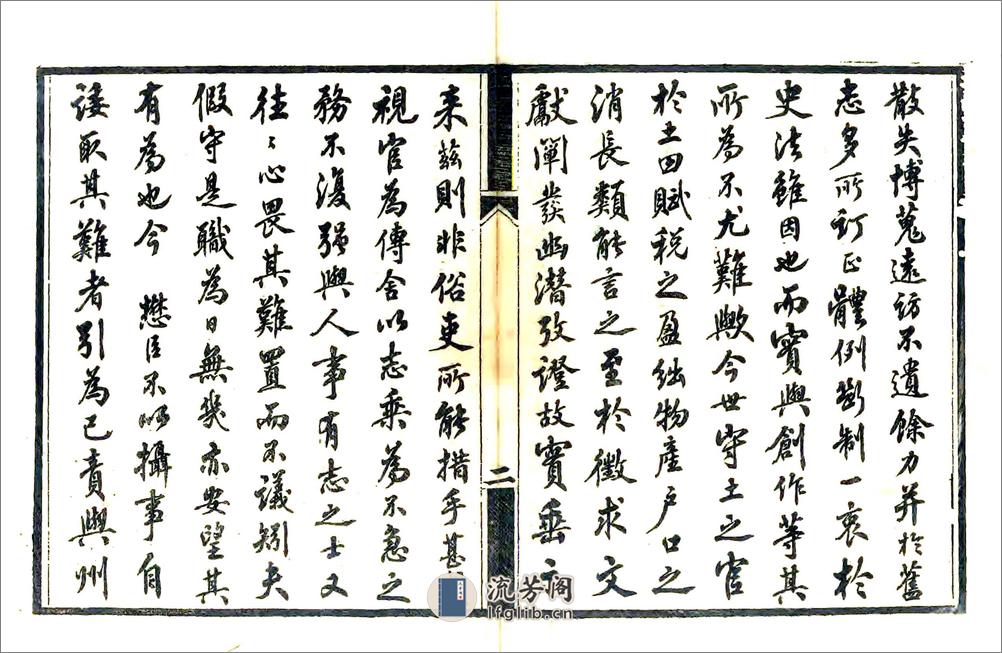 散失博蒐遠訪不遺餘力并於舊
志多所訂正體例斷制一衷於
史法雖因也而實與創作等其
所為不尤難歟今世守土之官
於土田賦稅之盈絀物產戶口之
消長類能言之至於徵求文
獻闡發幽潛攷證故實垂
來茲則非俗吏所能措手甚
視官為傳舍以志乘為不急之
務不復强與人事有志之士又
往〻心畏其難置而不議矧夫
假守是職為日無幾亦安望其
有為也今 懋臣不以攝事自
諉取其難者引為己責與州
二
流芳阁
lfglib.cn